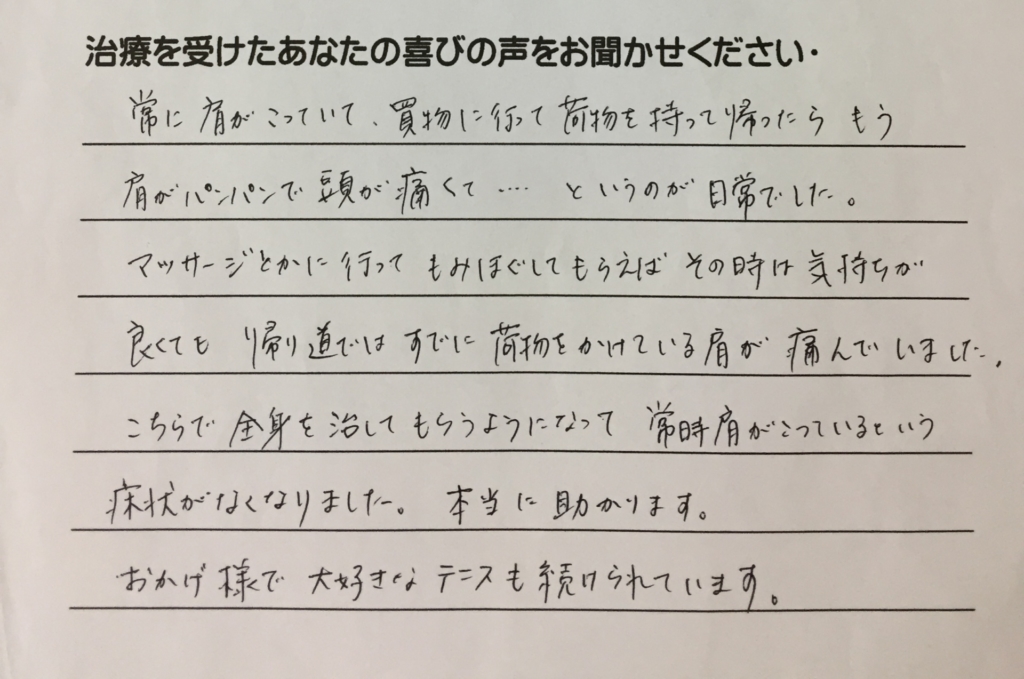 治療を受けたあなたの喜びの声をお聞かせください・
常に肩がこっていて、買物に行って荷物を持って帰ったら もう
肩がパンパンで頭が痛くて‥‥ というのが日常でした。
マッサージとかに行って もみほぐしてもらえば その時は気持ちが
良くても 帰り道ではすでに荷物をかけている肩が痛んでいました。
こちらで全身を治してもらうようになって 常時肩がこっているという
症状がなくなりました。 本当に助かります。
おかげ様で 大好きなテニスも続けられています。